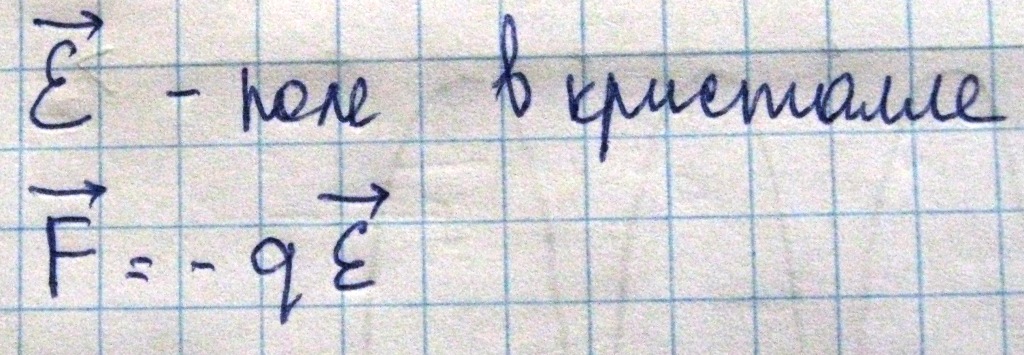 $\vec{\mathcal{E}}$ - поле в кристалле
$\vec{F} = -q\vec{\mathcal{E}}$